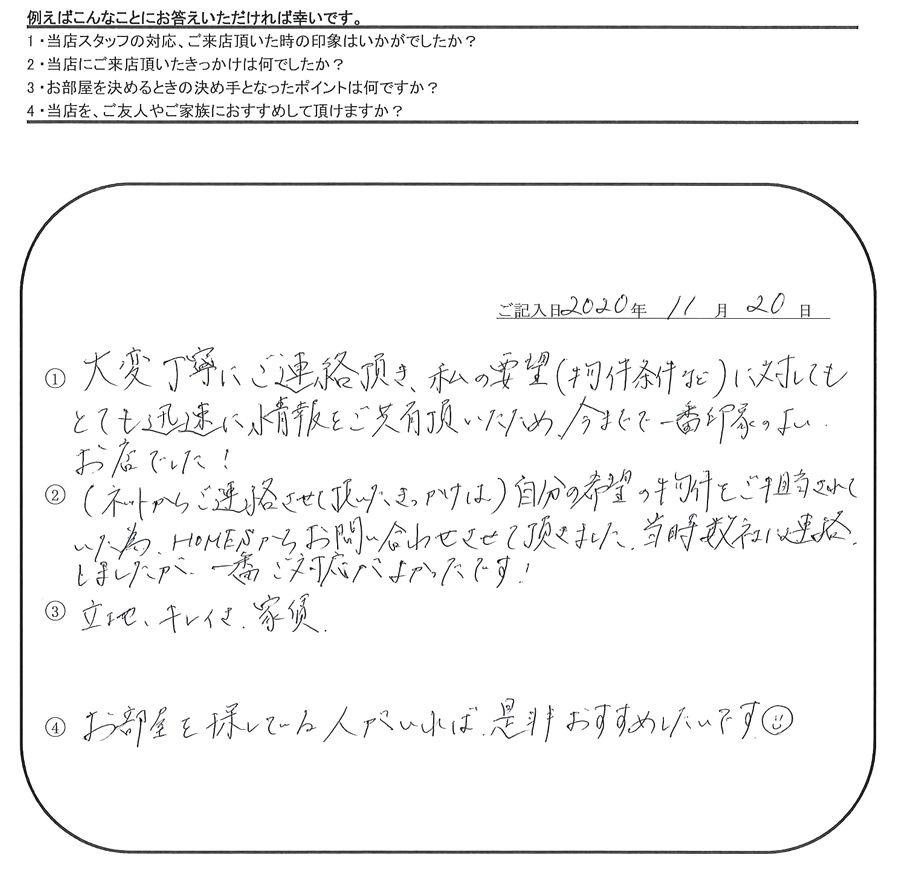 例えばこんなことにお答えいただければ幸いです。
1・当店スタッフの対応、ご来店頂いた時の印象はいかがでしたか？
2・当店にご来店頂いたきっかけは何でしたか？
3・お部屋を決めるときの決め手となったポイントは何ですか？
4・当店を、ご友人やご家族におすすめして頂けますか？
ご記入日2020年 11月 20日
① 大変丁寧にご連絡頂き、私の要望(物件条件など)に対しても
とても迅速に情報をご共有頂いたため、今までで一番印象のよい
お店でした！
② (ネットからご連絡させて頂いたきっかけは) 自分の希望の物件をご担当されて
いた為、HOME'Sからお問い合わせさせて頂きました。当時数社に連絡
しましたが、一番ご対応がよかったです！
③ 立地、キレイさ、家賃.
④ お部屋を探している人がいれば、是非おすすめしたいです☺